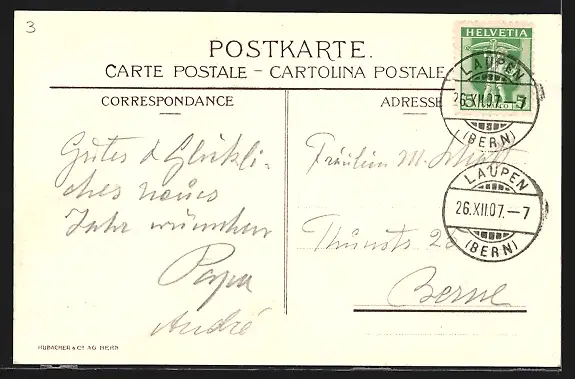 3
POSTKARTE.
CARTE POSTALE – CARTOLINA POSTALE
CORRESPONDANCE
ADRESSE
HELVETIA
LAUPEN
26.XII.07.–7
(BERN)
LAUPEN
26.XII.07.–7
(BERN)
Gutes & Glückli-
ches neues
Jahr wünschen
Papa
André
Fräulein M.
Berne
HUBACHER & Cº AG BERN